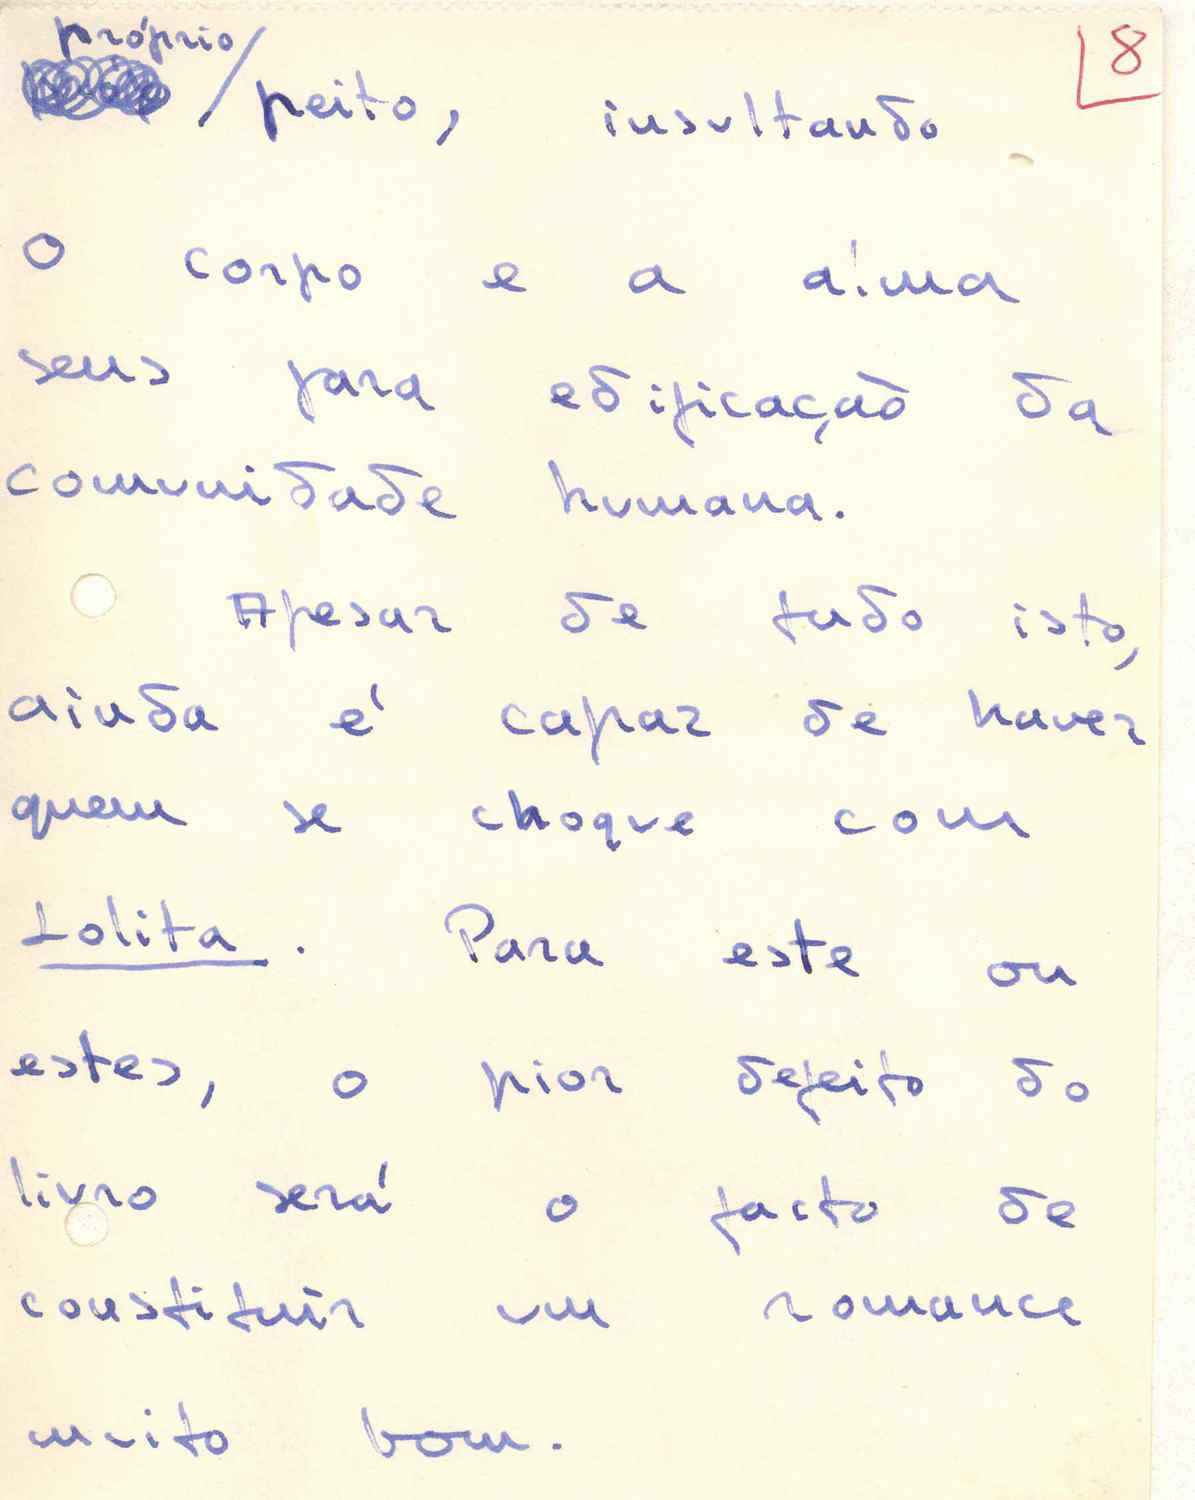 8
próprio
/ peito, insultando
o corpo e a alma
seus para edificação da
comunidade humana.
Apesar de tudo isto,
ainda é capaz de haver
quem se choque com
Lolita. Para este ou
estes, o pior defeito do
livro será o facto de
constituir um romance
muito bom.